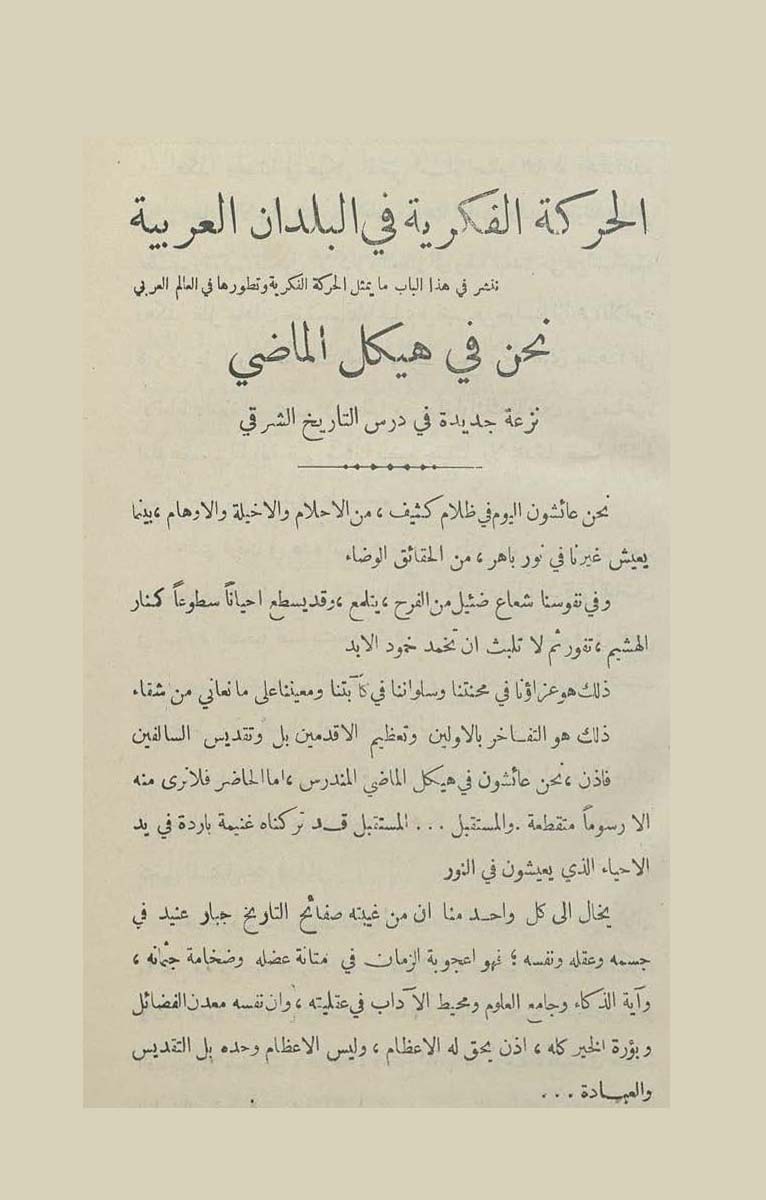 الحركة الفكرية في البلدان العربية
ننشر في هذا الباب ما يمثل الحركة الفكرية وتطورها في العالم العربي
نحن في هيكل الماضي
نزعة جديدة في درس التاريخ الشرقي
نحن عائشون اليوم في ظلام كثيف ، من الاحلام والاخيلة والاوهام ، بينما
يعيش غيرنا في نور باهر ، من الحقائق الوضاء
وفي نفوسنا شعاع ضئيل من الفرح ، يتلمع ، وقد يسطع احياناً سطوعاً كنار
الهشيم ، تفور ثم لا تلبث ان تخمد خمود الابد
ذلك هو عزاؤنا في محنتنا وسلواننا في كآبتنا ومعيننا على ما نعاني من شقاء
ذلك هو التفاخر بالاولين وتعظيم الاقدمين بل وتقديس السالفين
فاذن ، نحن عائشون في هيكل الماضي المندرس ، اما الحاضر فلا نرى منه
الا رسوماً متقطعة . والمستقبل ... المستقبل قد تركناه غنيمة باردة في يد
الاحياء الذي يعيشون في النور
يخال الى كل واحد منا ان من غيبته صفائح التاريخ جبار عنيد في
جسمه وعقله ونفسه ؛ فهو اعجوبة الزمان في متانة عضله وضخامة جثمانه ،
وآية الذكاء وجامع العلوم ومحيط الآداب في عقليته ، وان نفسه معدن الفضائل
وبؤرة الخير كله ، اذن يحق له الاعظام ، وليس الاعظام وحده بل التقديس
والعبادة ...